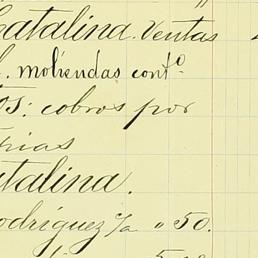 Catalina. Ventas
. moliendas cont.o
os: cobros por
rias
talina.
odríguez c/a " 50.